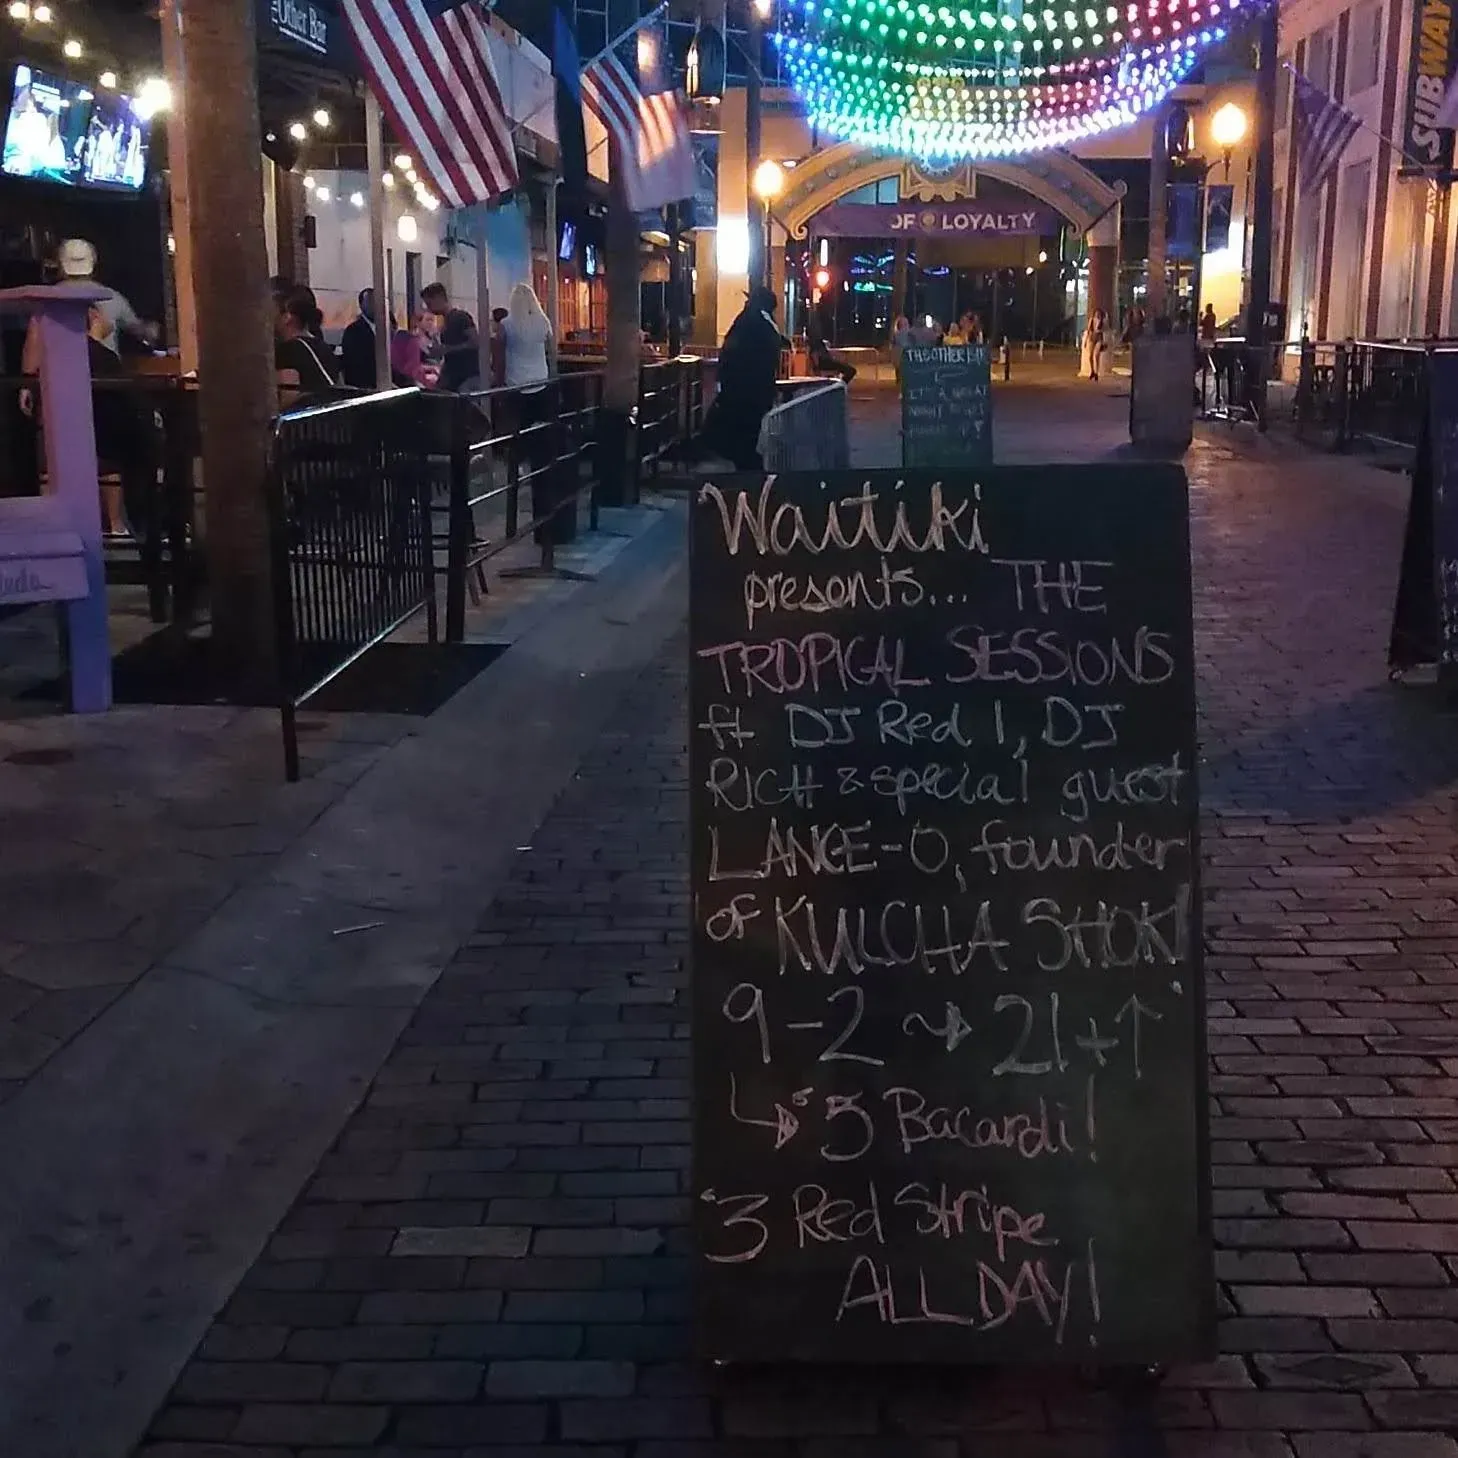 Other Bar
SUBWAY
OF LOYALTY
THE OTHER BAR
IT'S A GREAT
NIGHT TO GET
Waitiki
presents... THE
TROPICAL SESSIONS
ft DJ Red 1, DJ
RICH & special guest
LANCE-O, founder
of KULCHA SHOK!
9-2 → 21+↑
↳ $5 Bacardi!
$3 Red Stripe
ALL DAY!